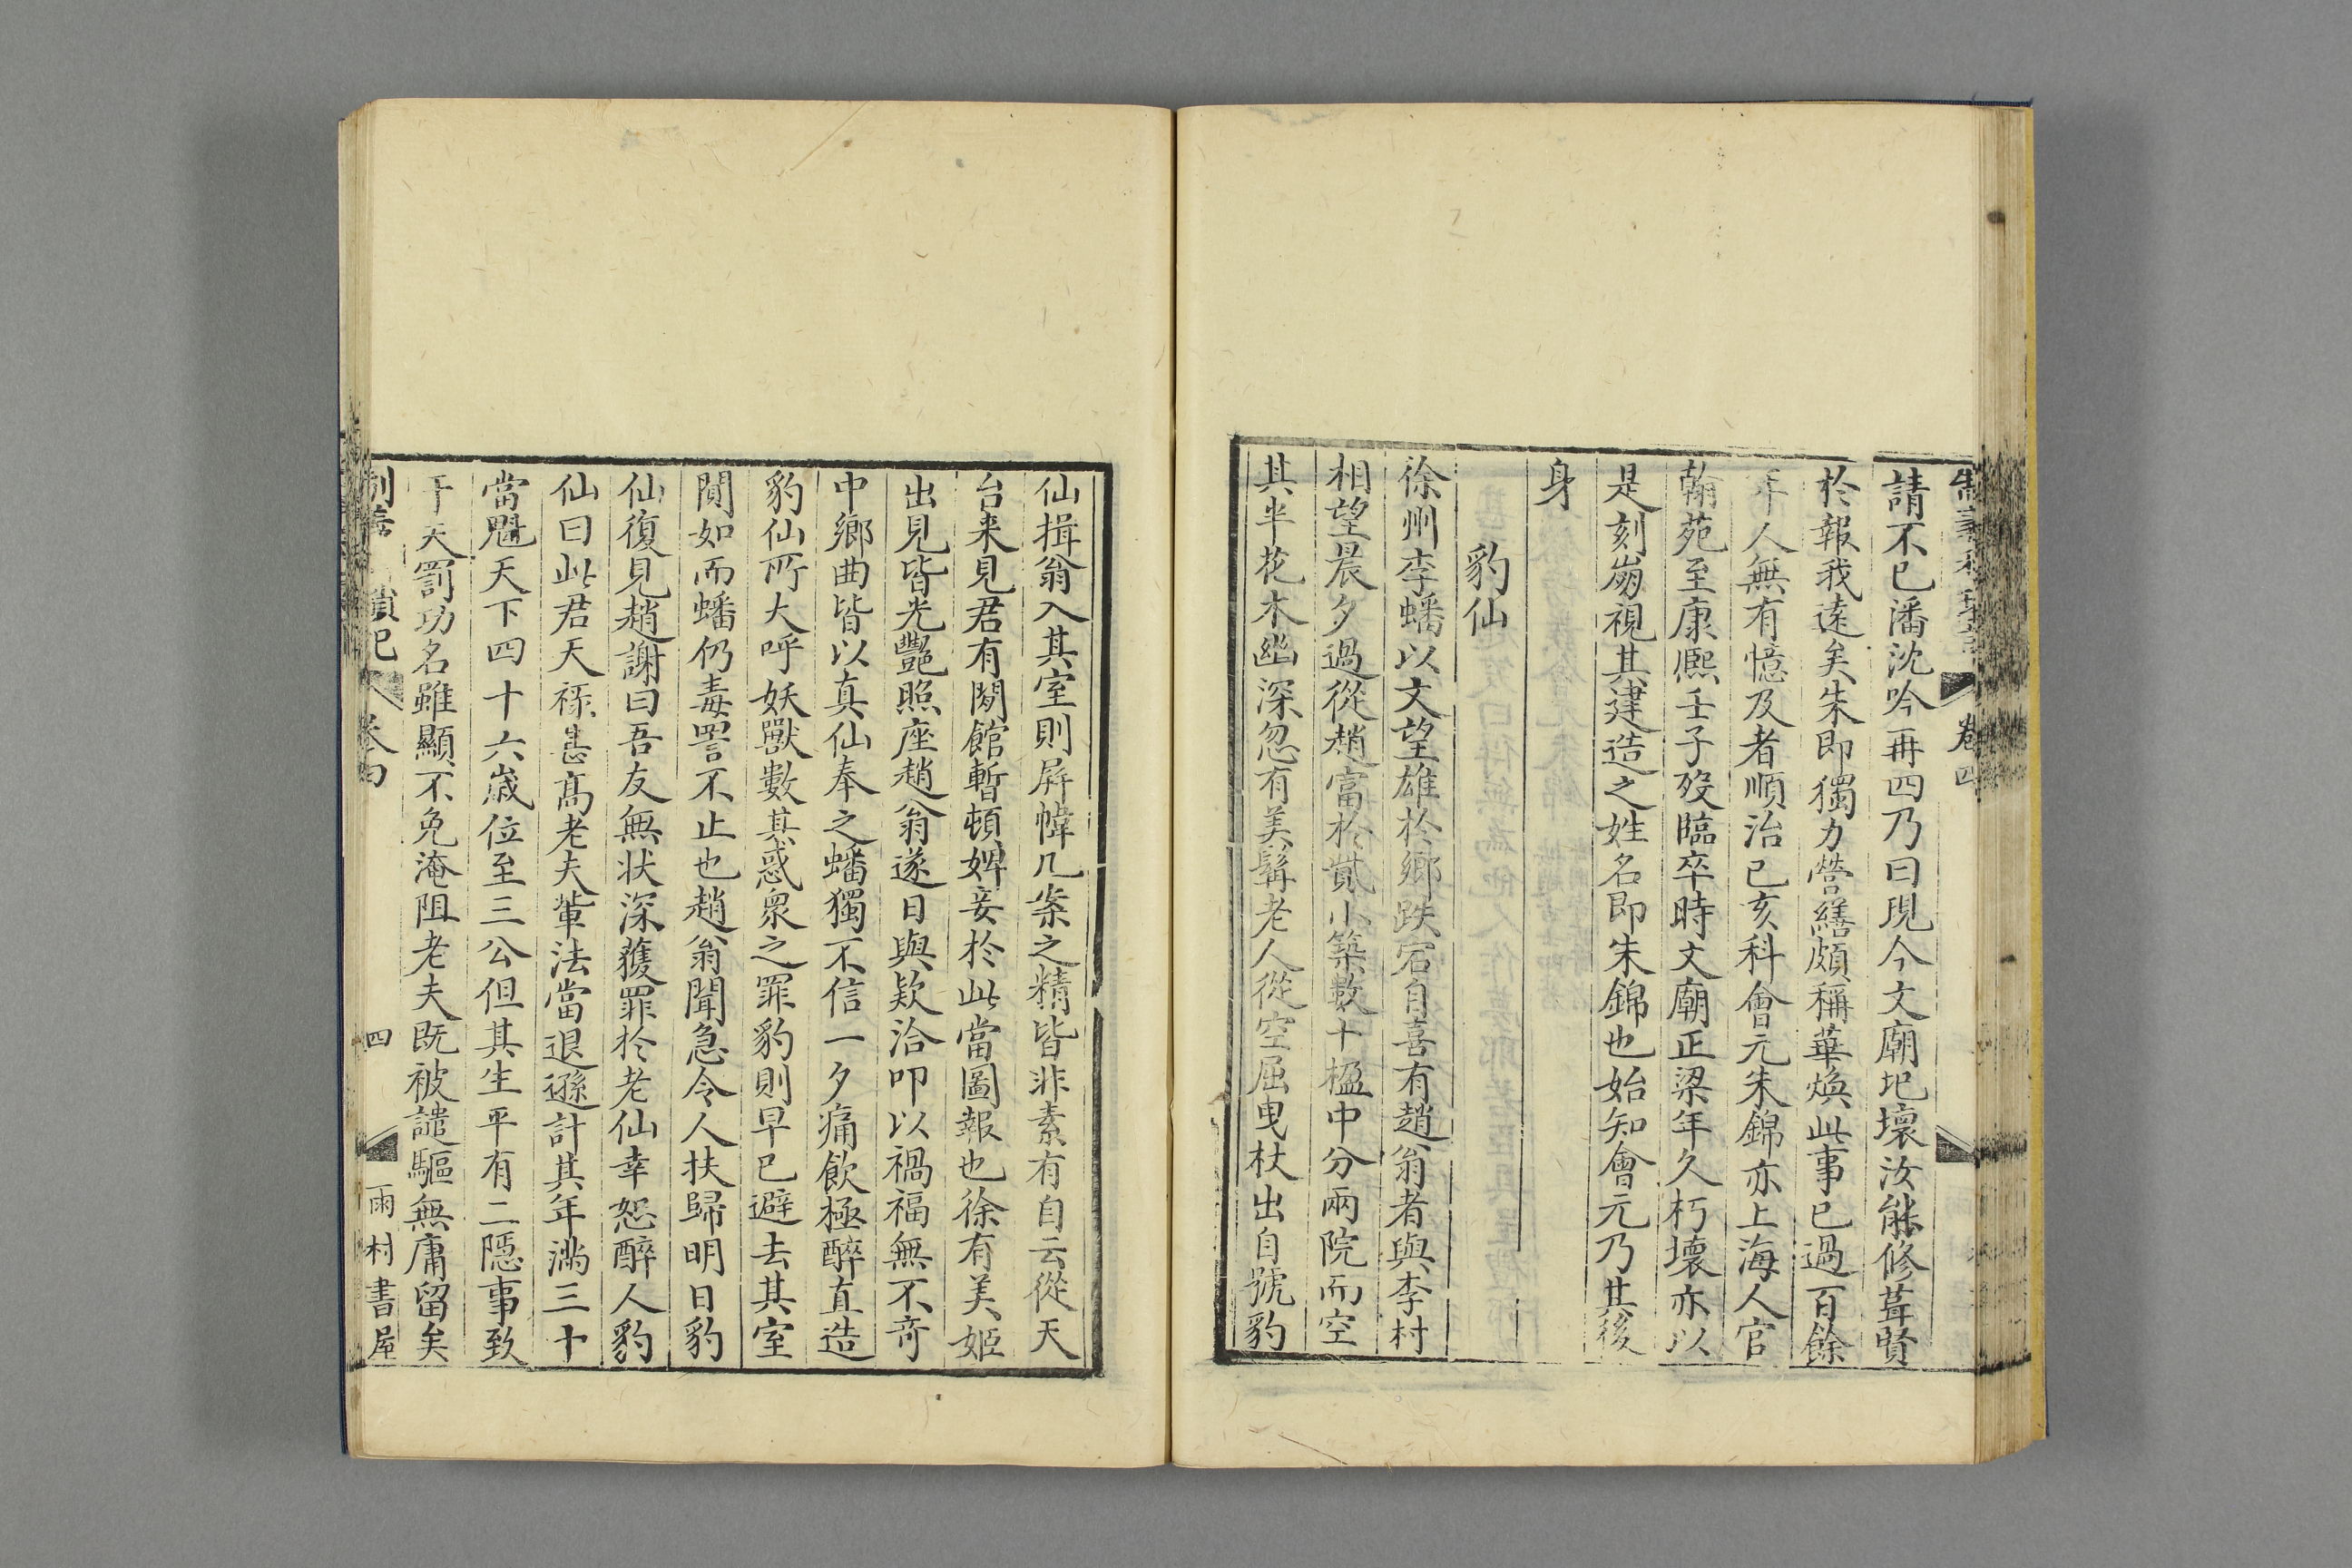 卷四
請不已潘沈吟再四乃曰現今文廟圯壞汝能修葺賢
於報我遠矣朱即獨力營繕頗稱華煥此事已過百餘
年人無有憶及者順治己亥科會元朱錦亦上海人官
翰苑至康熈壬子歿臨卒時文廟正梁年久朽壞亦以
是刻崩視其建造之姓名即朱錦也始知會元乃其後
身
豹仙
徐州李蟠以文望雄於鄉跌宕自喜有趙翁者與李村
相望晨夕過從趙富於貲小築數十楹中分兩院而空
其半花木幽深忽有美髯老人從空屈曳杖出自號豹
仙揖翁入其室則屏幃几案之精皆非素有自云從天
台来見君有閑館暫頓婢妾於此當圖報也徐有美姬
出見皆光豔照座趙翁遂日與欵洽叩以禍福無不竒
中鄉曲皆以真仙奉之蟠獨不信一夕痛飲極醉直造
豹仙所大呼妖獸數其惑衆之罪豹則早已避去其室
閴如而蟠仍毒詈不止也趙翁聞急令人扶歸明日豹
仙復見趙謝曰吾友無状深獲罪於老仙幸恕醉人豹
仙曰此君天祿甚高老夫輩法當退遜計其年満三十
當魁天下四十六歲位至三公但其生平有二隱事致
干天罰功名雖顯不免淹阻老夫既被譴驅無庸留矣
瑣記 卷四 四 雨村書屋